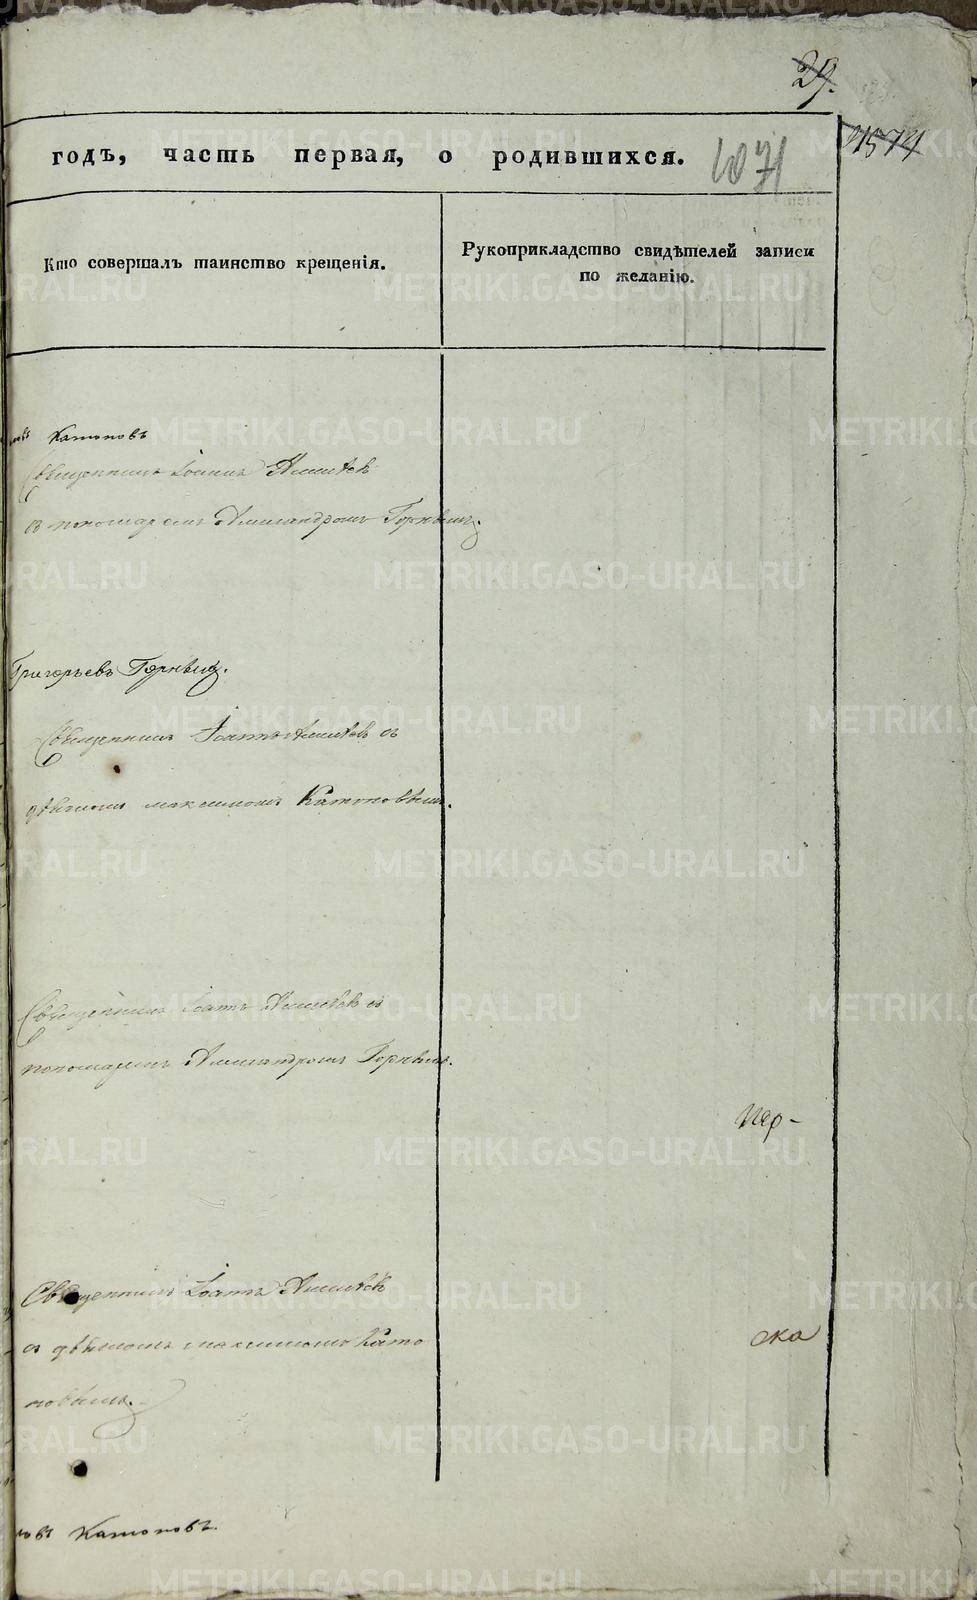 29.
1574
годъ, часть первая, о родившихся.
1071
Кто совершалъ таинство крещенія.
Рукоприкладство свидѣтелей записи
по желанію.
Катоновъ
Священникъ Іоаннъ
съ пономаремъ Александромъ
Григорьевъ
Священникъ Іоаннъ съ
дьячкомъ Максимомъ Катоновымъ.
Священникъ Іоаннъ съ
пономаремъ Александромъ
Пер-
Священникъ Іоаннъ
съ дьячкомъ Максимомъ Като
новымъ.
ска
Катоновъ.
METRIKI.GASO-URAL.RU